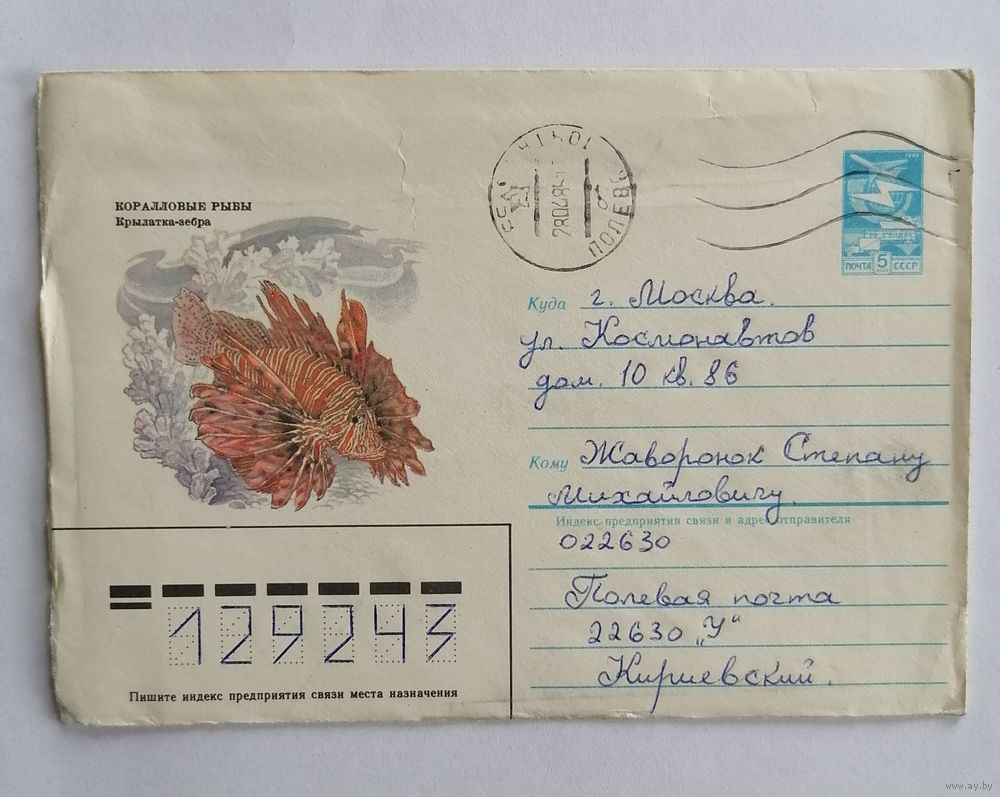 КОРАЛЛОВЫЕ РЫБЫ
Крылатка-зебра
28048
ПОЧТА 5 КОП СССР
Куда г. Москва.
ул. Космонавтов
дом. 10 кв. 86
Кому Жаворонок Степану
Михайловичу.
Индекс предприятия связи и адрес отправителя
022630
Полевая почта
22630 „У“
Кириевский.
129243
Пишите индекс предприятия связи места назначения
www.ay.by